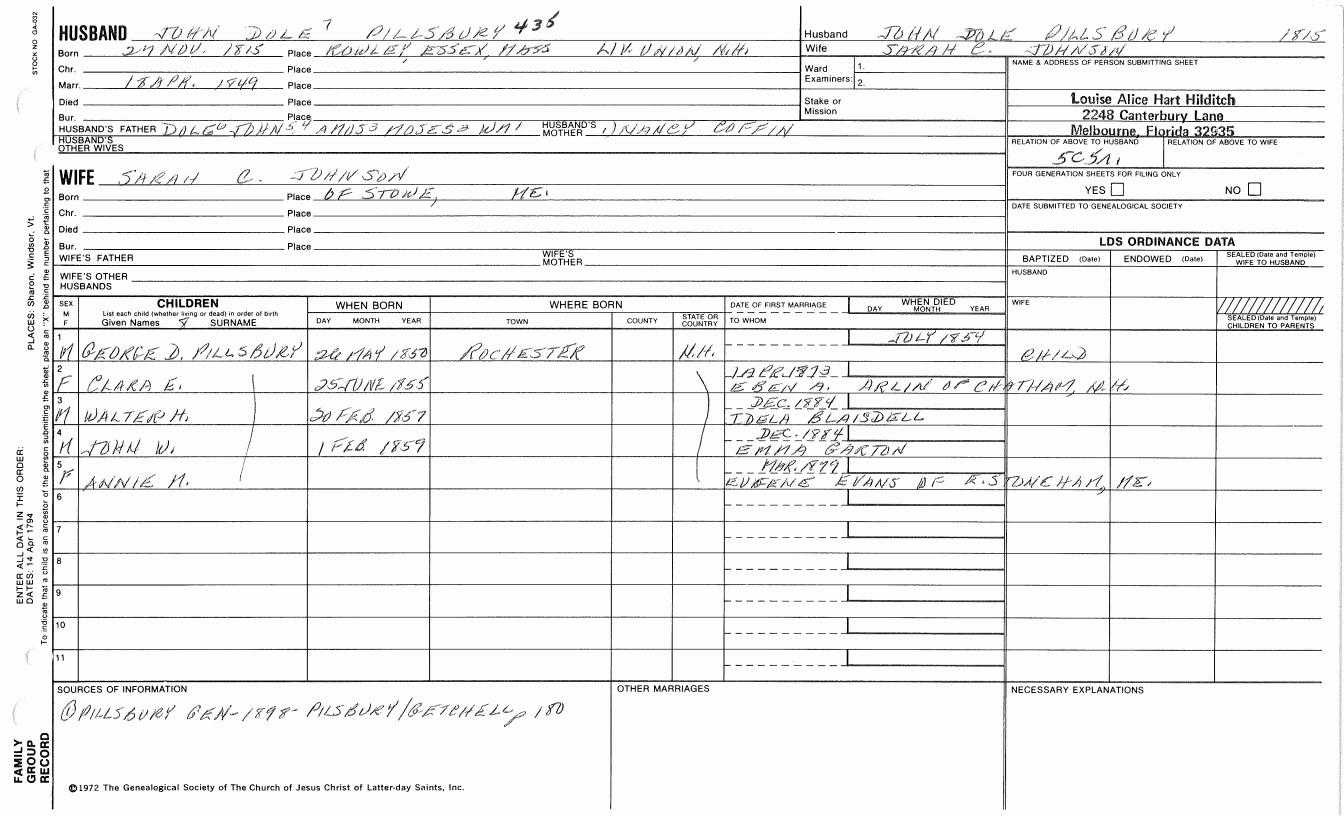 STOCK NO. GA-032
HUSBAND JOHN DOLE 7 PILLSBURY 435
Born 27 NOV. 1815 Place ROWLEY, ESSEX, MASS LIV. UNION, N.H.
Chr. Place
Marr. 18 APR. 1849 Place
Died Place
Bur. Place
HUSBAND'S FATHER DOLE6 JOHN5,4 AMOS3 MOSES2 WM1 HUSBAND'S MOTHER 1) NANCY COFFIN
HUSBAND'S OTHER WIVES
Husband JOHN DOLE PILLSBURY 1815
Wife SARAH C. JOHNSON
Ward 1.
Examiners: 2.
Stake or Mission
NAME & ADDRESS OF PERSON SUBMITTING SHEET
Louise Alice Hart Hilditch
2248 Canterbury Lane
Melbourne, Florida 32935
RELATION OF ABOVE TO HUSBAND RELATION OF ABOVE TO WIFE
FOUR GENERATION SHEETS FOR FILING ONLY
YES NO
DATE SUBMITTED TO GENEALOGICAL SOCIETY
WIFE SARAH C. JOHNSON
Born Place OF STOWE, ME.
Chr. Place
Died Place
Bur. Place
WIFE'S FATHER WIFE'S MOTHER
WIFE'S OTHER HUSBANDS
LDS ORDINANCE DATA
BAPTIZED (Date) ENDOWED (Date) SEALED (Date and Temple) WIFE TO HUSBAND
HUSBAND
WIFE
SEALED (Date and Temple) CHILDREN TO PARENTS
SEX M F
CHILDREN
List each child (whether living or dead) in order of birth
Given Names 8 SURNAME
WHEN BORN
DAY MONTH YEAR
WHERE BORN
TOWN COUNTY STATE OR COUNTRY
DATE OF FIRST MARRIAGE
TO WHOM
WHEN DIED
DAY MONTH YEAR
1 M GEORGE D. PILLSBURY 26 MAY 1850 ROCHESTER N.H. JULY 1854 CHILD
2 F CLARA E. 25 JUNE 1855 1 APR. 1873
EBEN A. ARLIN OF CHATHAM, N.H.
3 M WALTER H. 20 FEB. 1857 DEC. 1884
IDELA BLAISDELL
4 M JOHN W. 1 FEB. 1859 DEC. 1884
EMMA GARTON
5 F ANNIE M. MAR. 1879
EUGENE EVANS OF E. STONEHAM, ME.
6
7
8
9
10
11
SOURCES OF INFORMATION
① PILLSBURY GEN- 1898- PILSBURY/GETCHELL, p 180
OTHER MARRIAGES
NECESSARY EXPLANATIONS
©1972 The Genealogical Society of The Church of Jesus Christ of Latter-day Saints, Inc.
ENTER ALL DATA IN THIS ORDER:
DATES: 14 Apr 1794
PLACES: Sharon, Windsor, Vt.
To indicate that a child is an ancestor of the person submitting the sheet, place an "X" behind the number pertaining to that
FAMILY
GROUP
RECORD